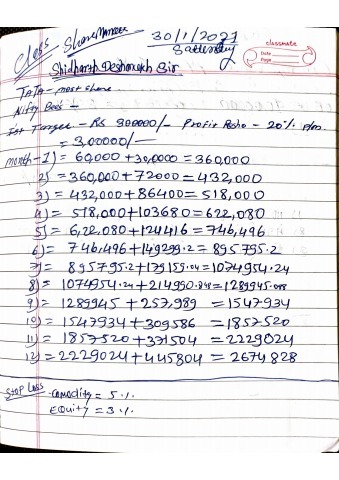 Class - Share Market
30/1/2021
Saturday
classmate
Date
Page
Shidharth Deshmukh Sir
TaTa - most share
Nifty Book -
1st Target - RS 300000/- Profit Ratio - 20% p/m.
= 3,00000/-
month - 1) = 60,000 + 30,0000 = 360,000
2) = 360,000 + 72000 = 432,000
3) = 432,000 + 86400 = 518,000
4) = 518,000 + 103680 = 622,080
5) = 6,22,080 + 124416 = 746,496
6) = 746,496 + 149299.2 = 895795.2
7) = 895795.2 + 179159.04 = 1074954.24
8) = 1074954.24 + 214990.848 = 1289945.088
9) = 1289945 + 257989 = 1547934
10) = 1547934 + 309586 = 1857520
11) = 1857520 + 371504 = 2229024
12) = 2229024 + 445804 = 2674828
Stop Loss - Comodity = 5%
Equity = 3%